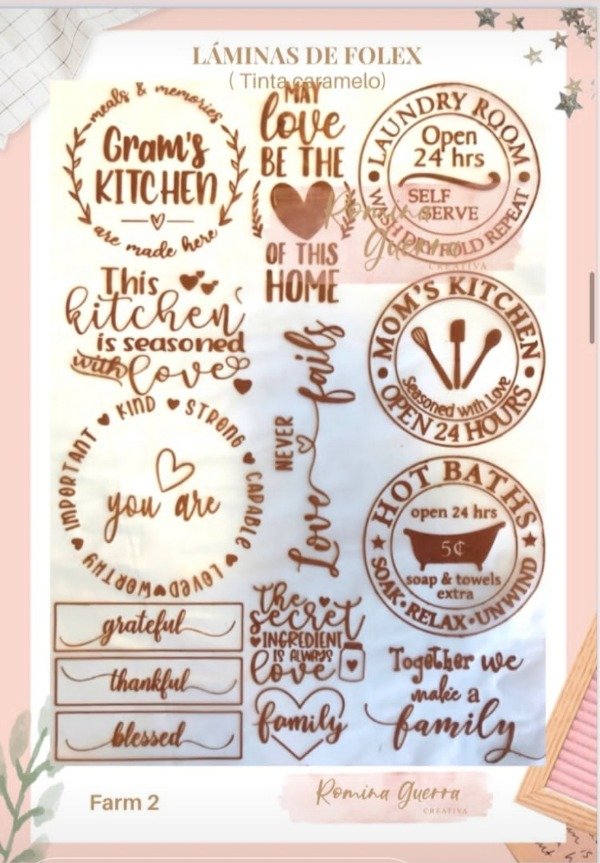 LÁMINAS DE FOLEX
( Tinta caramelo)
meals & memories
Gram's
KITCHEN
are made here
MAY
love
BE THE
OF THIS
HOME
LAUNDRY ROOM
Open
24 hrs
SELF
SERVE
WASH DRY FOLD REPEAT
Romina
Guerra
CREATIVA
This
kitchen
is seasoned
with love
Love NEVER fails
MOM'S KITCHEN
Seasoned with Love
OPEN 24 HOURS
you are
IMPORTANT KIND STRONG CAPABLE LOVED WORTHY
HOT BATHS
open 24 hrs
5¢
soap & towels
extra
SOAK • RELAX • UNWIND
grateful
thankful
blessed
The
secret
INGREDIENT
IS ALWAYS
love
family
Together we
make a
family
Farm 2
Romina Guerra
CREATIVA